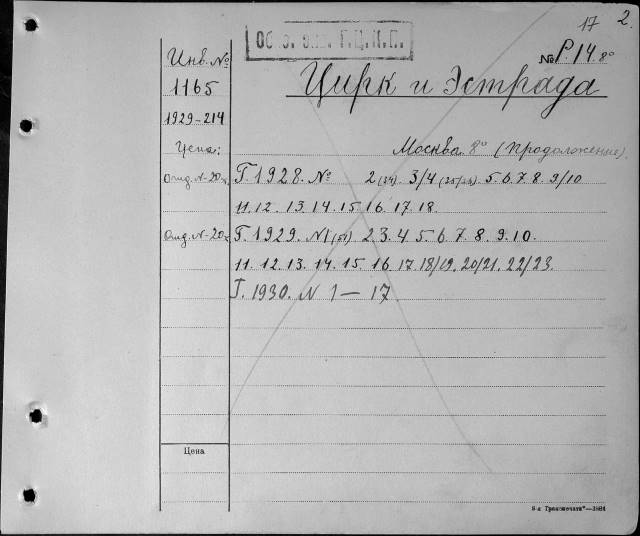 17 2.
Обяз. экз. Г.Ц.К.П.
Инв. № № Р.14. 8°
1165 Цирк и Эстрада
1929-214
Цена: Москва 8° (продолжение).
Г. 1928. № 2 (24). 3/4 (25/26) 5. 6. 7. 8. 9/10
11. 12. 13. 14. 15. 16. 17. 18.
Г. 1929. №1 2. 3. 4. 5. 6. 7. 8. 9. 10.
11. 12. 13. 14. 15. 16. 17. 18/19. 20/21. 22/23.
Г. 1930. N 1 — 17.
Цена